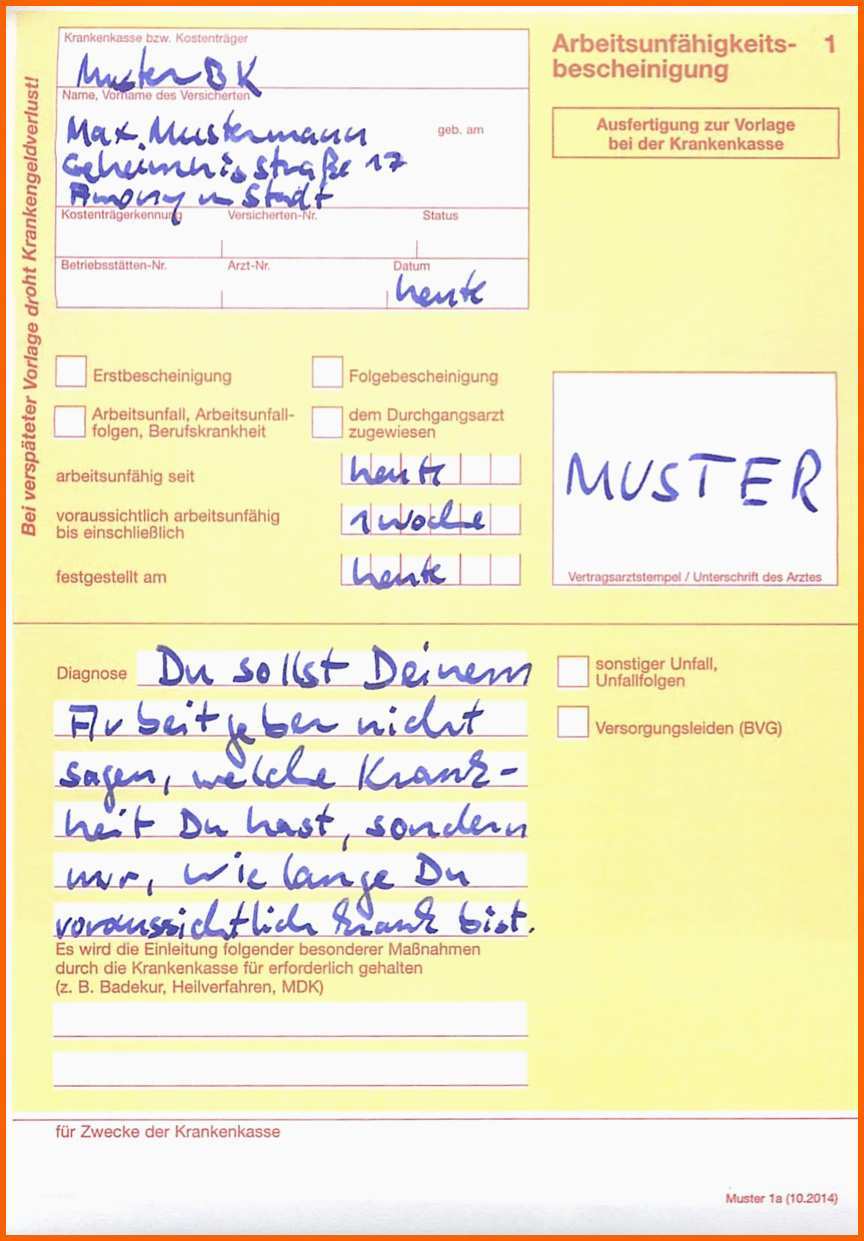 Krankenkasse bzw. Kostenträger
Muster BK
Name, Vorname des Versicherten
Max Mustermann
geb. am
Geheimnisstraße 17
Anonym Stadt
Kostenträgerkennung Versicherten-Nr. Status
Betriebsstätten-Nr. Arzt-Nr. Datum
heute
Arbeitsunfähigkeits- 1
bescheinigung
Ausfertigung zur Vorlage
bei der Krankenkasse
Bei verspäteter Vorlage droht Krankengeldverlust!
Erstbescheinigung
Folgebescheinigung
Arbeitsunfall, Arbeitsunfall-
folgen, Berufskrankheit
dem Durchgangsarzt
zugewiesen
arbeitsunfähig seit
heute
voraussichtlich arbeitsunfähig
bis einschließlich
1 Woche
festgestellt am
heute
MUSTER
Vertragsarztstempel / Unterschrift des Arztes
Diagnose Du sollst Deinem
Arbeitgeber nicht
sagen, welche Krank-
heit Du hast, sondern
nur, wie lange Du
voraussichtlich krank bist.
sonstiger Unfall,
Unfallfolgen
Versorgungsleiden (BVG)
Es wird die Einleitung folgender besonderer Maßnahmen
durch die Krankenkasse für erforderlich gehalten
(z. B. Badekur, Heilverfahren, MDK)
für Zwecke der Krankenkasse
Muster 1a (10.2014)